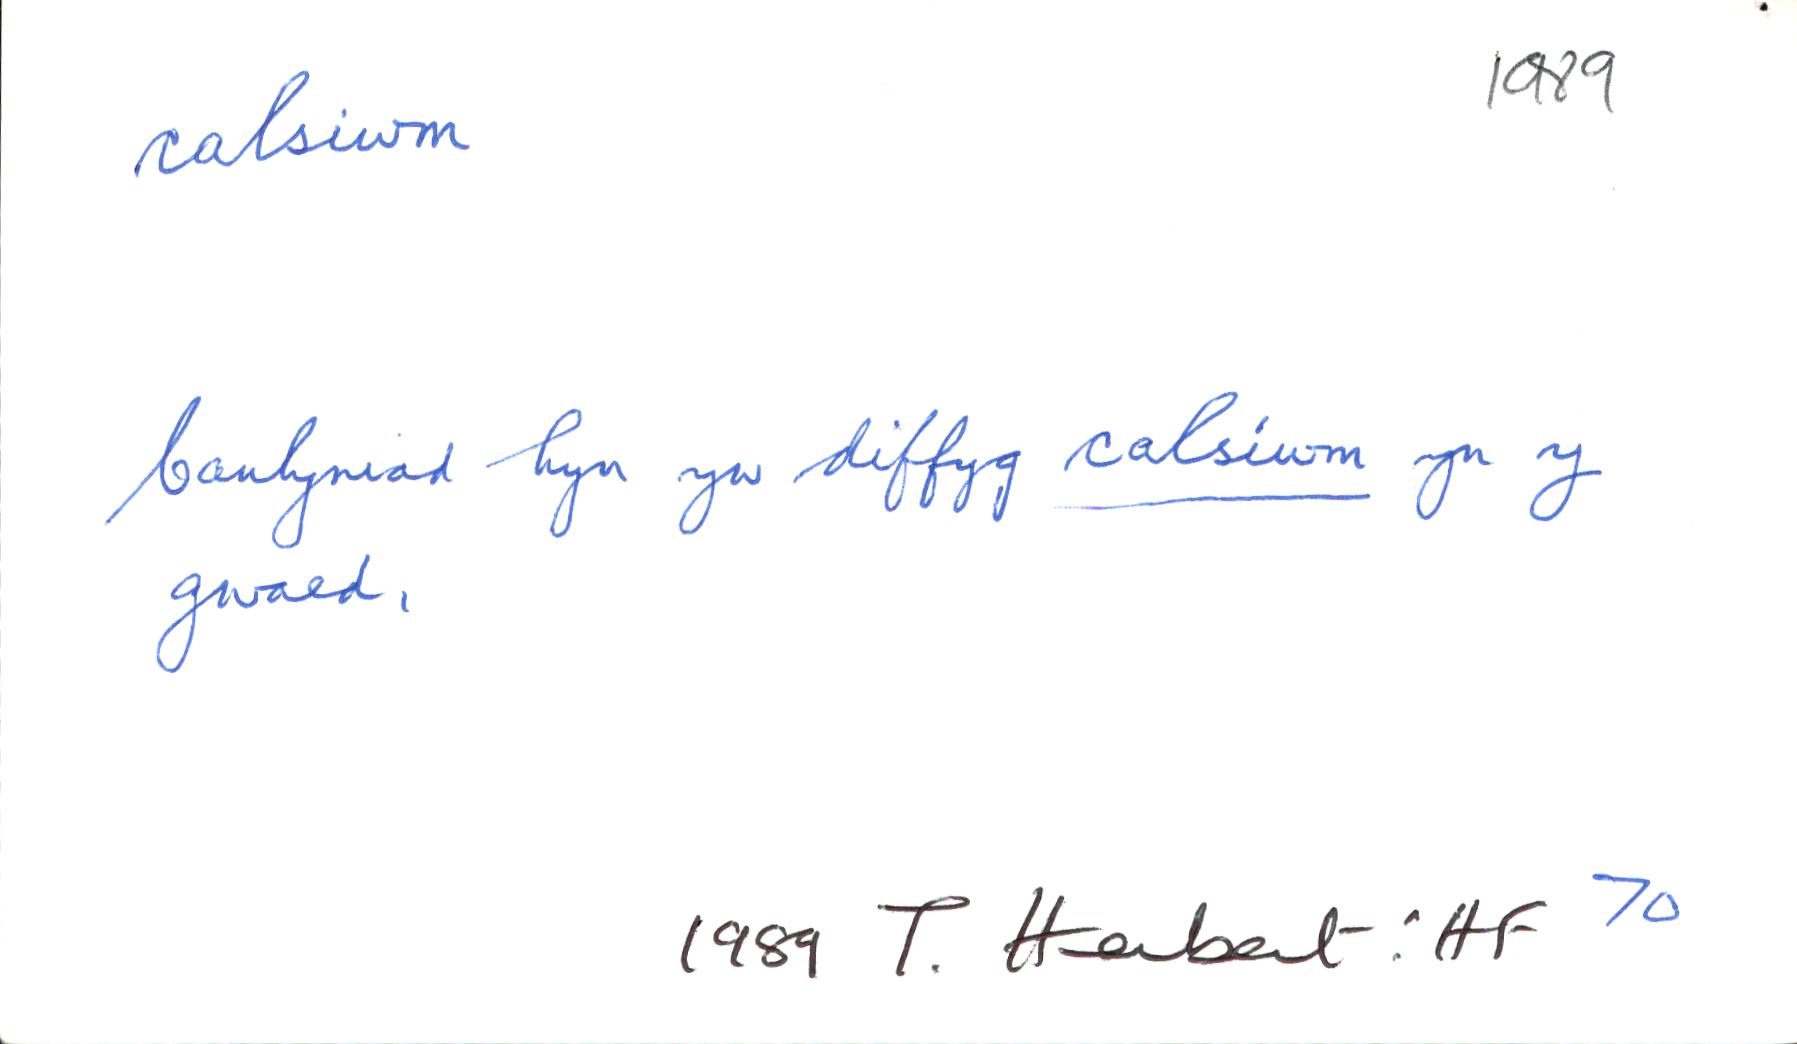 calsiwm 1989
Canlyniad hyn yw diffyg calsiwm yn y
gwaed.
1989 T. Herbert: HF 70